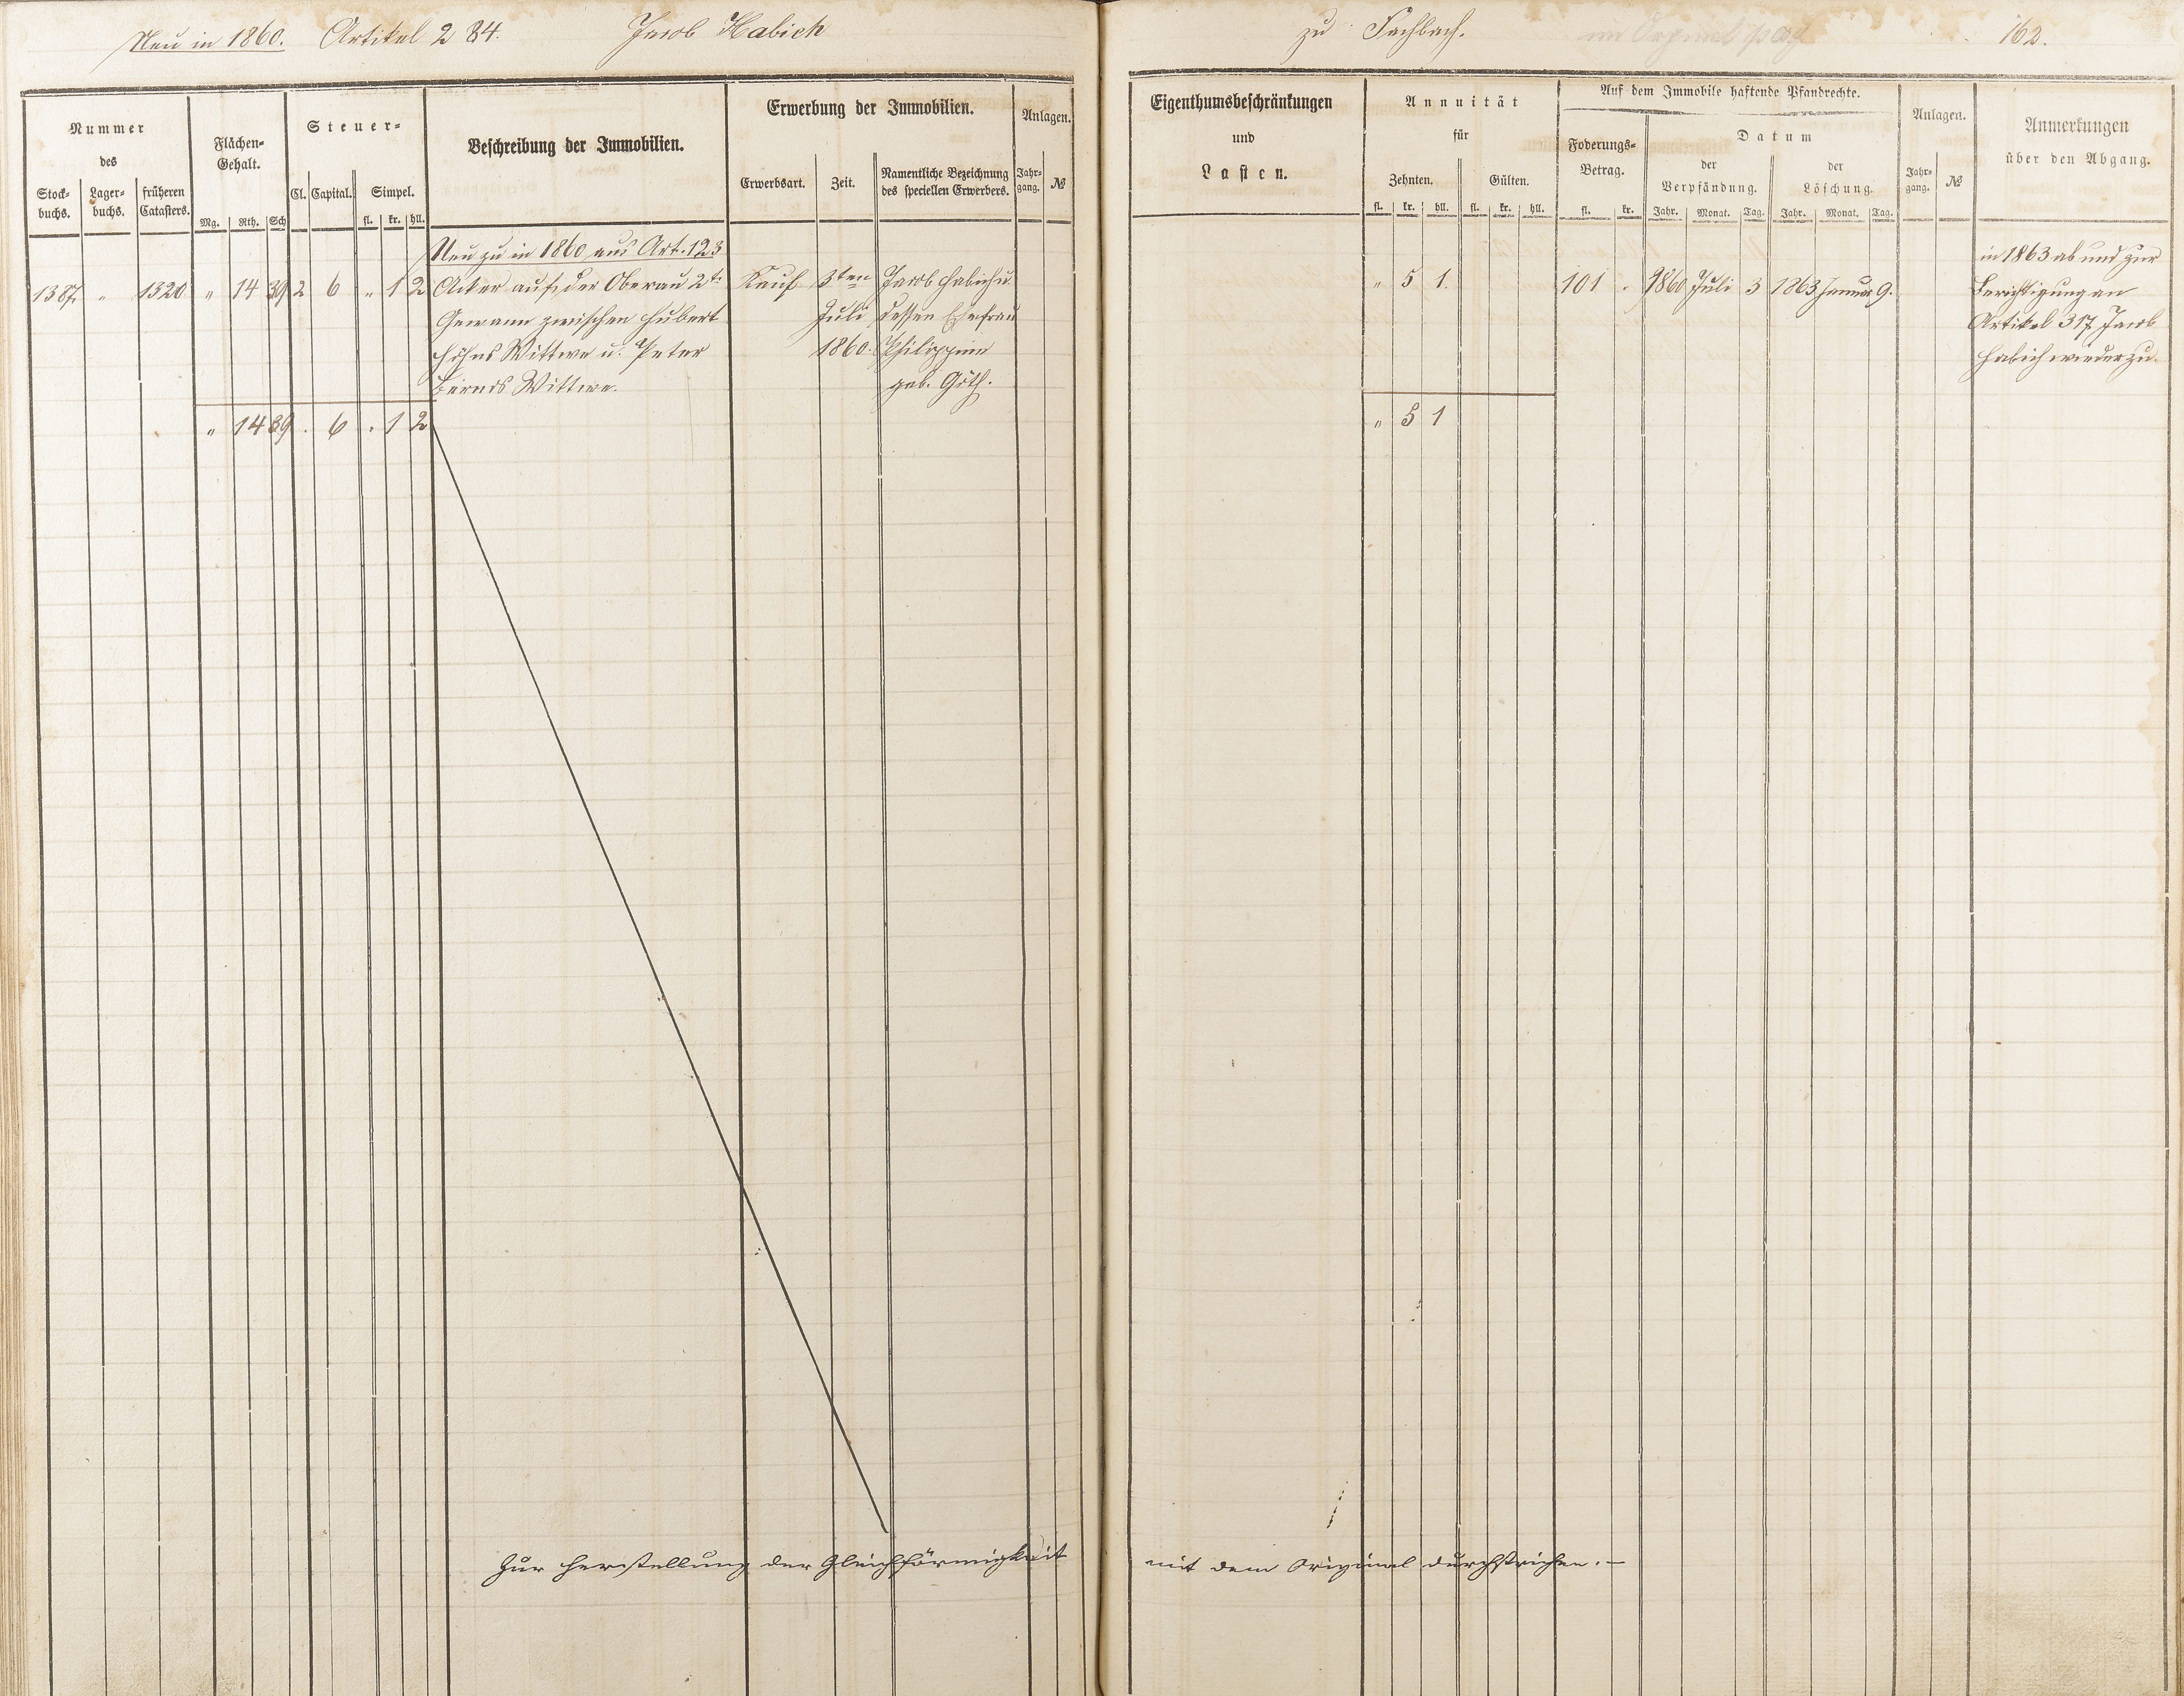 Neu in 1860. Artikel 284. Jacob Habich zu Fachbach. 162.
Nummer des
Stock-buchs. Lager-buchs. früheren Catasters.
Flächen-Gehalt.
Mg. Rth. Sch
Steuer-
Cl. Capital. Simpel.
fl. kr. hll.
Beschreibung der Immobilien.
Erwerbung der Immobilien.
Erwerbsart. Zeit. Namentliche Bezeichnung des speciellen Erwerbers.
Anlagen.
Jahr-gang. №
Eigenthumsbeschränkungen
und
Lasten.
Annuität
für
Zehnten. Gülten.
fl. kr. hll. fl. kr. hll.
Auf dem Immobile haftende Pfandrechte.
Foderungs-Betrag.
fl. kr.
Datum
der Verpfändung. der Löschung.
Jahr. Monat. Tag. Jahr. Monat. Tag.
Anlagen.
Jahr-gang. №
Anmerkungen
über den Abgang.
Neu zu in 1860 aus Art. 123
1387 " 1320 " 14 39 2 6 " 1 2 Acker auf der Oberau 2te Kauf 3ten Jacob Habich u.
Gewann zwischen Hubert Juli dessen Ehefrau
Höhns Wittwe u. Peter 1860. Philippine
Bernds Wittwe. geb. Göth.
" 14 39 . 6 . 1 2
" 5 1. 101 . 1860 Juli 3 1863 Januar 9.
" 5 1
in 1863 ab und zur
Berichtigung an
Artikel 317 Jacob
Habich wieder zu.
Zur Herstellung der Gleichförmigkeit mit dem Original durchstrichen. –